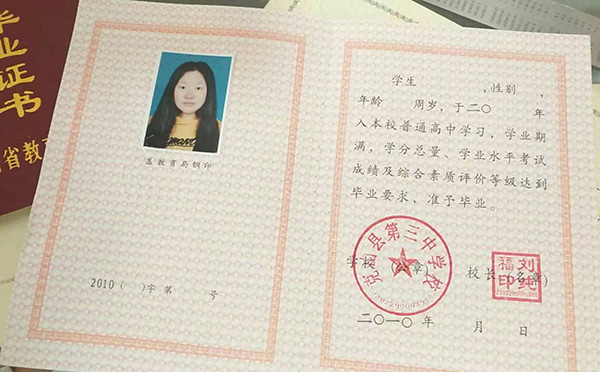 毕业证书
省教育
盖教育局钢印
2010( )字 第 号
学生 ,性别 ,
年龄 周岁,于二〇 年
入本校普通高中学习,学业期
满,学分总量、学业水平考试
成绩及综合素质评价等级达到
毕业要求,准予毕业。
县第三中学校
学校 (公章)
校长(名章)
刘纯福印
二〇一〇年 月 日